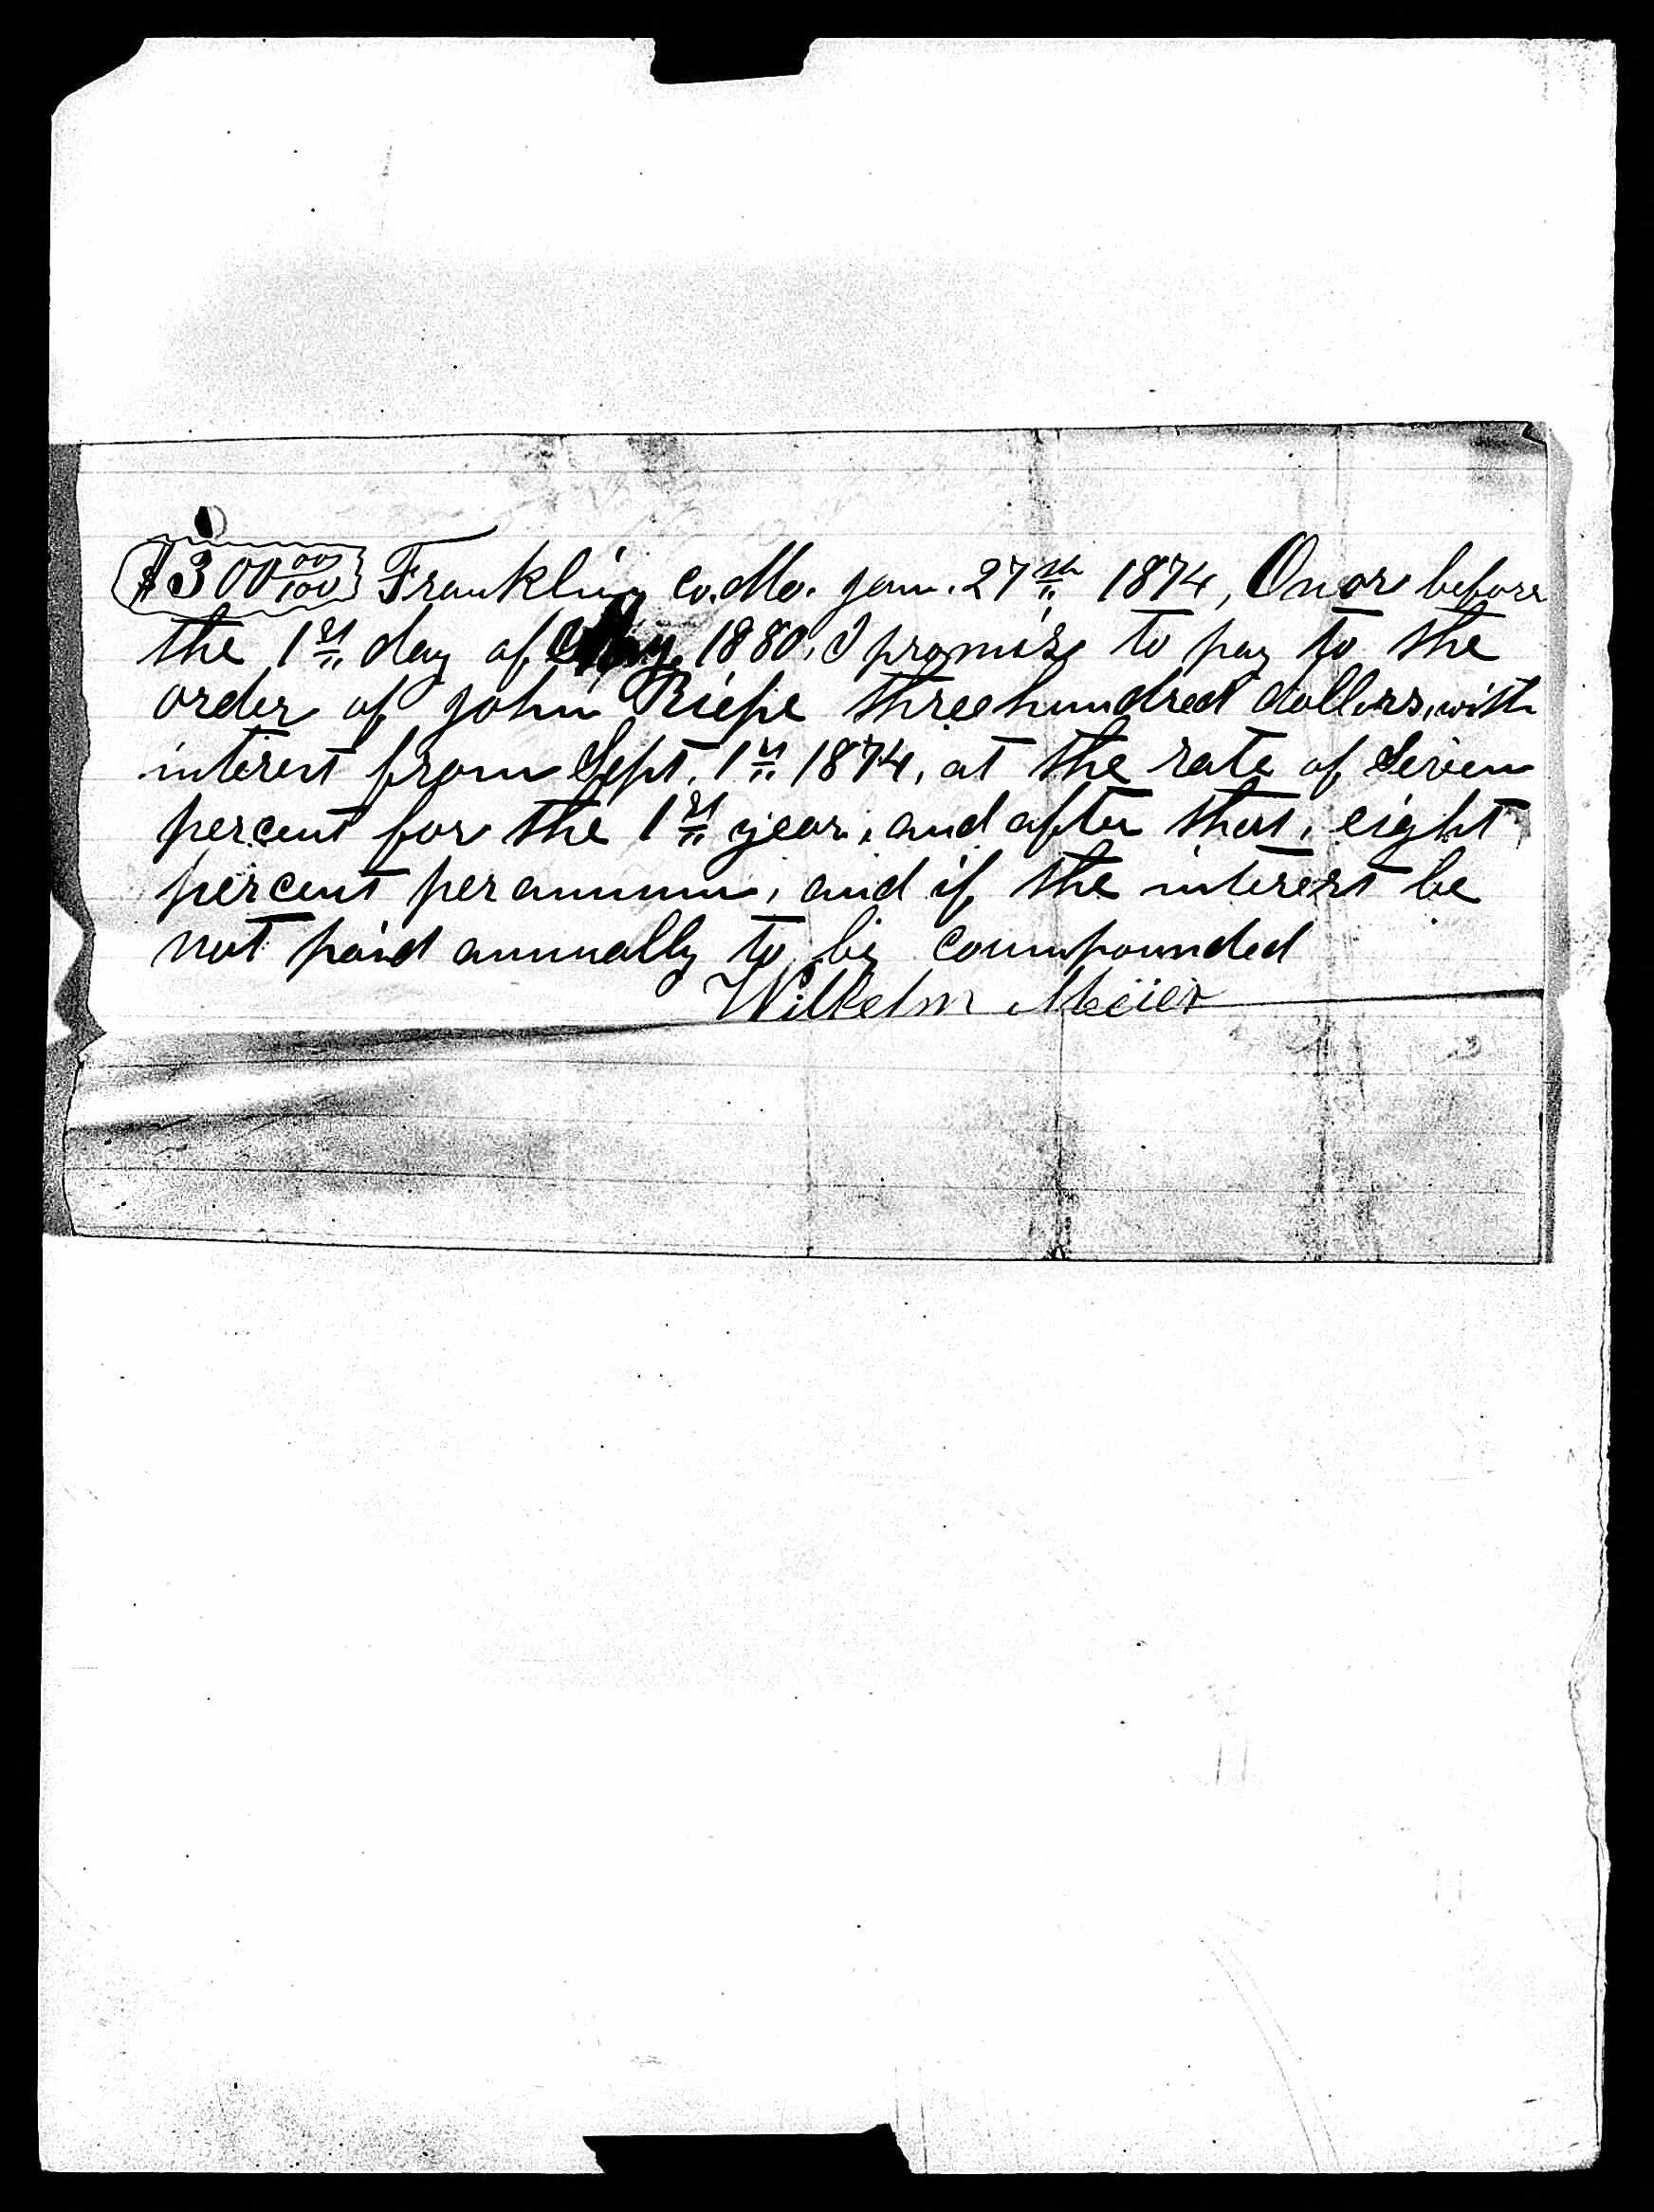 $300 00/100 Franklin Co. Mo. Jan. 27th 1874, On or before
the 1st day of 1880, I promise to pay to the
order of John Riepe threehundred dollars, with
interest from Sept. 1st 1874, at the rate of Seven
percent for the 1st year, and after that, eight
percent per annum, and if the interest be
not paid annually to be coumpounded
Wilhelm Meier